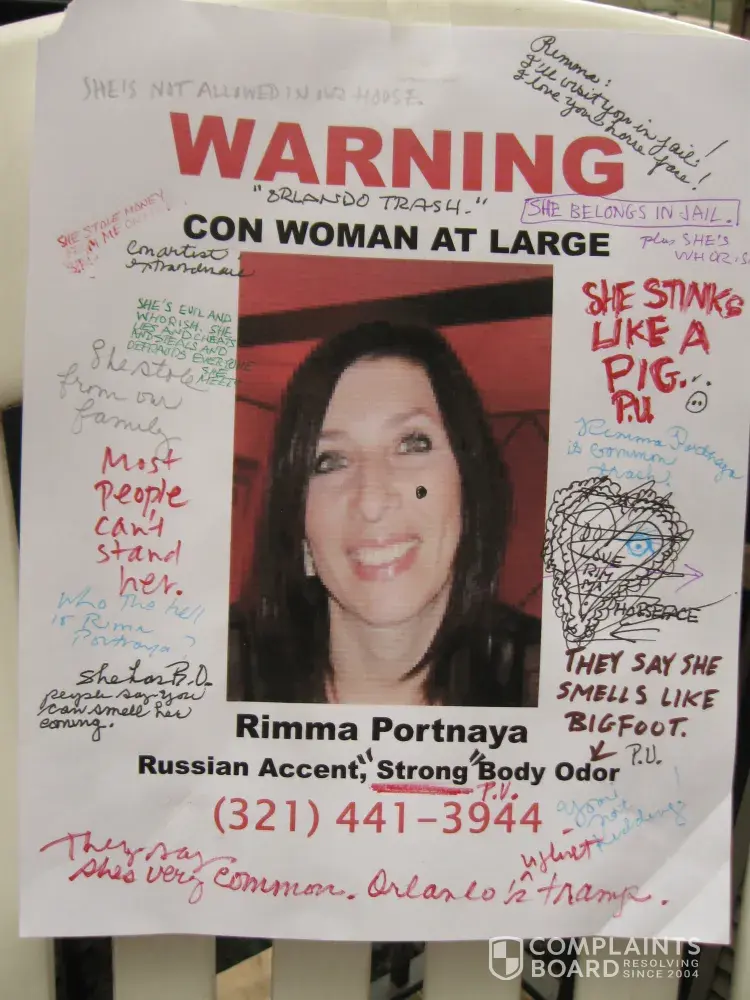 SHE IS NOT ALLOWED IN OUR HOUSE.
Rimma:
I'll visit you in jail!
I love your horse face!
WARNING
"ORLANDO TRASH."
SHE BELONGS IN JAIL.
plus SHE'S
CON WOMAN AT LARGE
SHE STOLE MONEY
FROM ME
Con artist
extraordinaire
SHE'S EVIL AND
WHORISH. SHE
LIES AND CHEATS
AND STEALS AND
DEFRAUDS EVERYONE
SHE
MEETS
She stole
from our
family
Most
people
can't
stand
her.
Who the hell
is Rimma
Portnaya?
She has B.O.
people say you
can smell her
coming.
SHE STINKS
LIKE A
PIG...
P.U
Rimma Portnaya
is common
trash!
I
LOVE
RIM
MA
HORSEFACE
THEY SAY SHE
SMELLS LIKE
BIGFOOT.
P.U.
Rimma Portnaya
Russian Accent, "Strong" Body Odor
P.U.
(321) 441-3944
your
not
kidding!
They say
she's very common. Orlando's tramp.
COMPLAINTS
BOARD RESOLVING
SINCE 2004